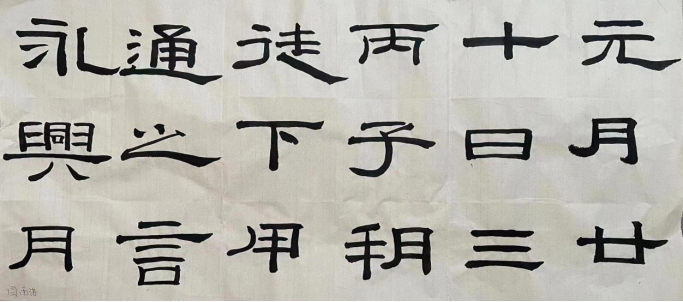 元月廿
十日三
丙子朔
徒下用
通之言
永興月